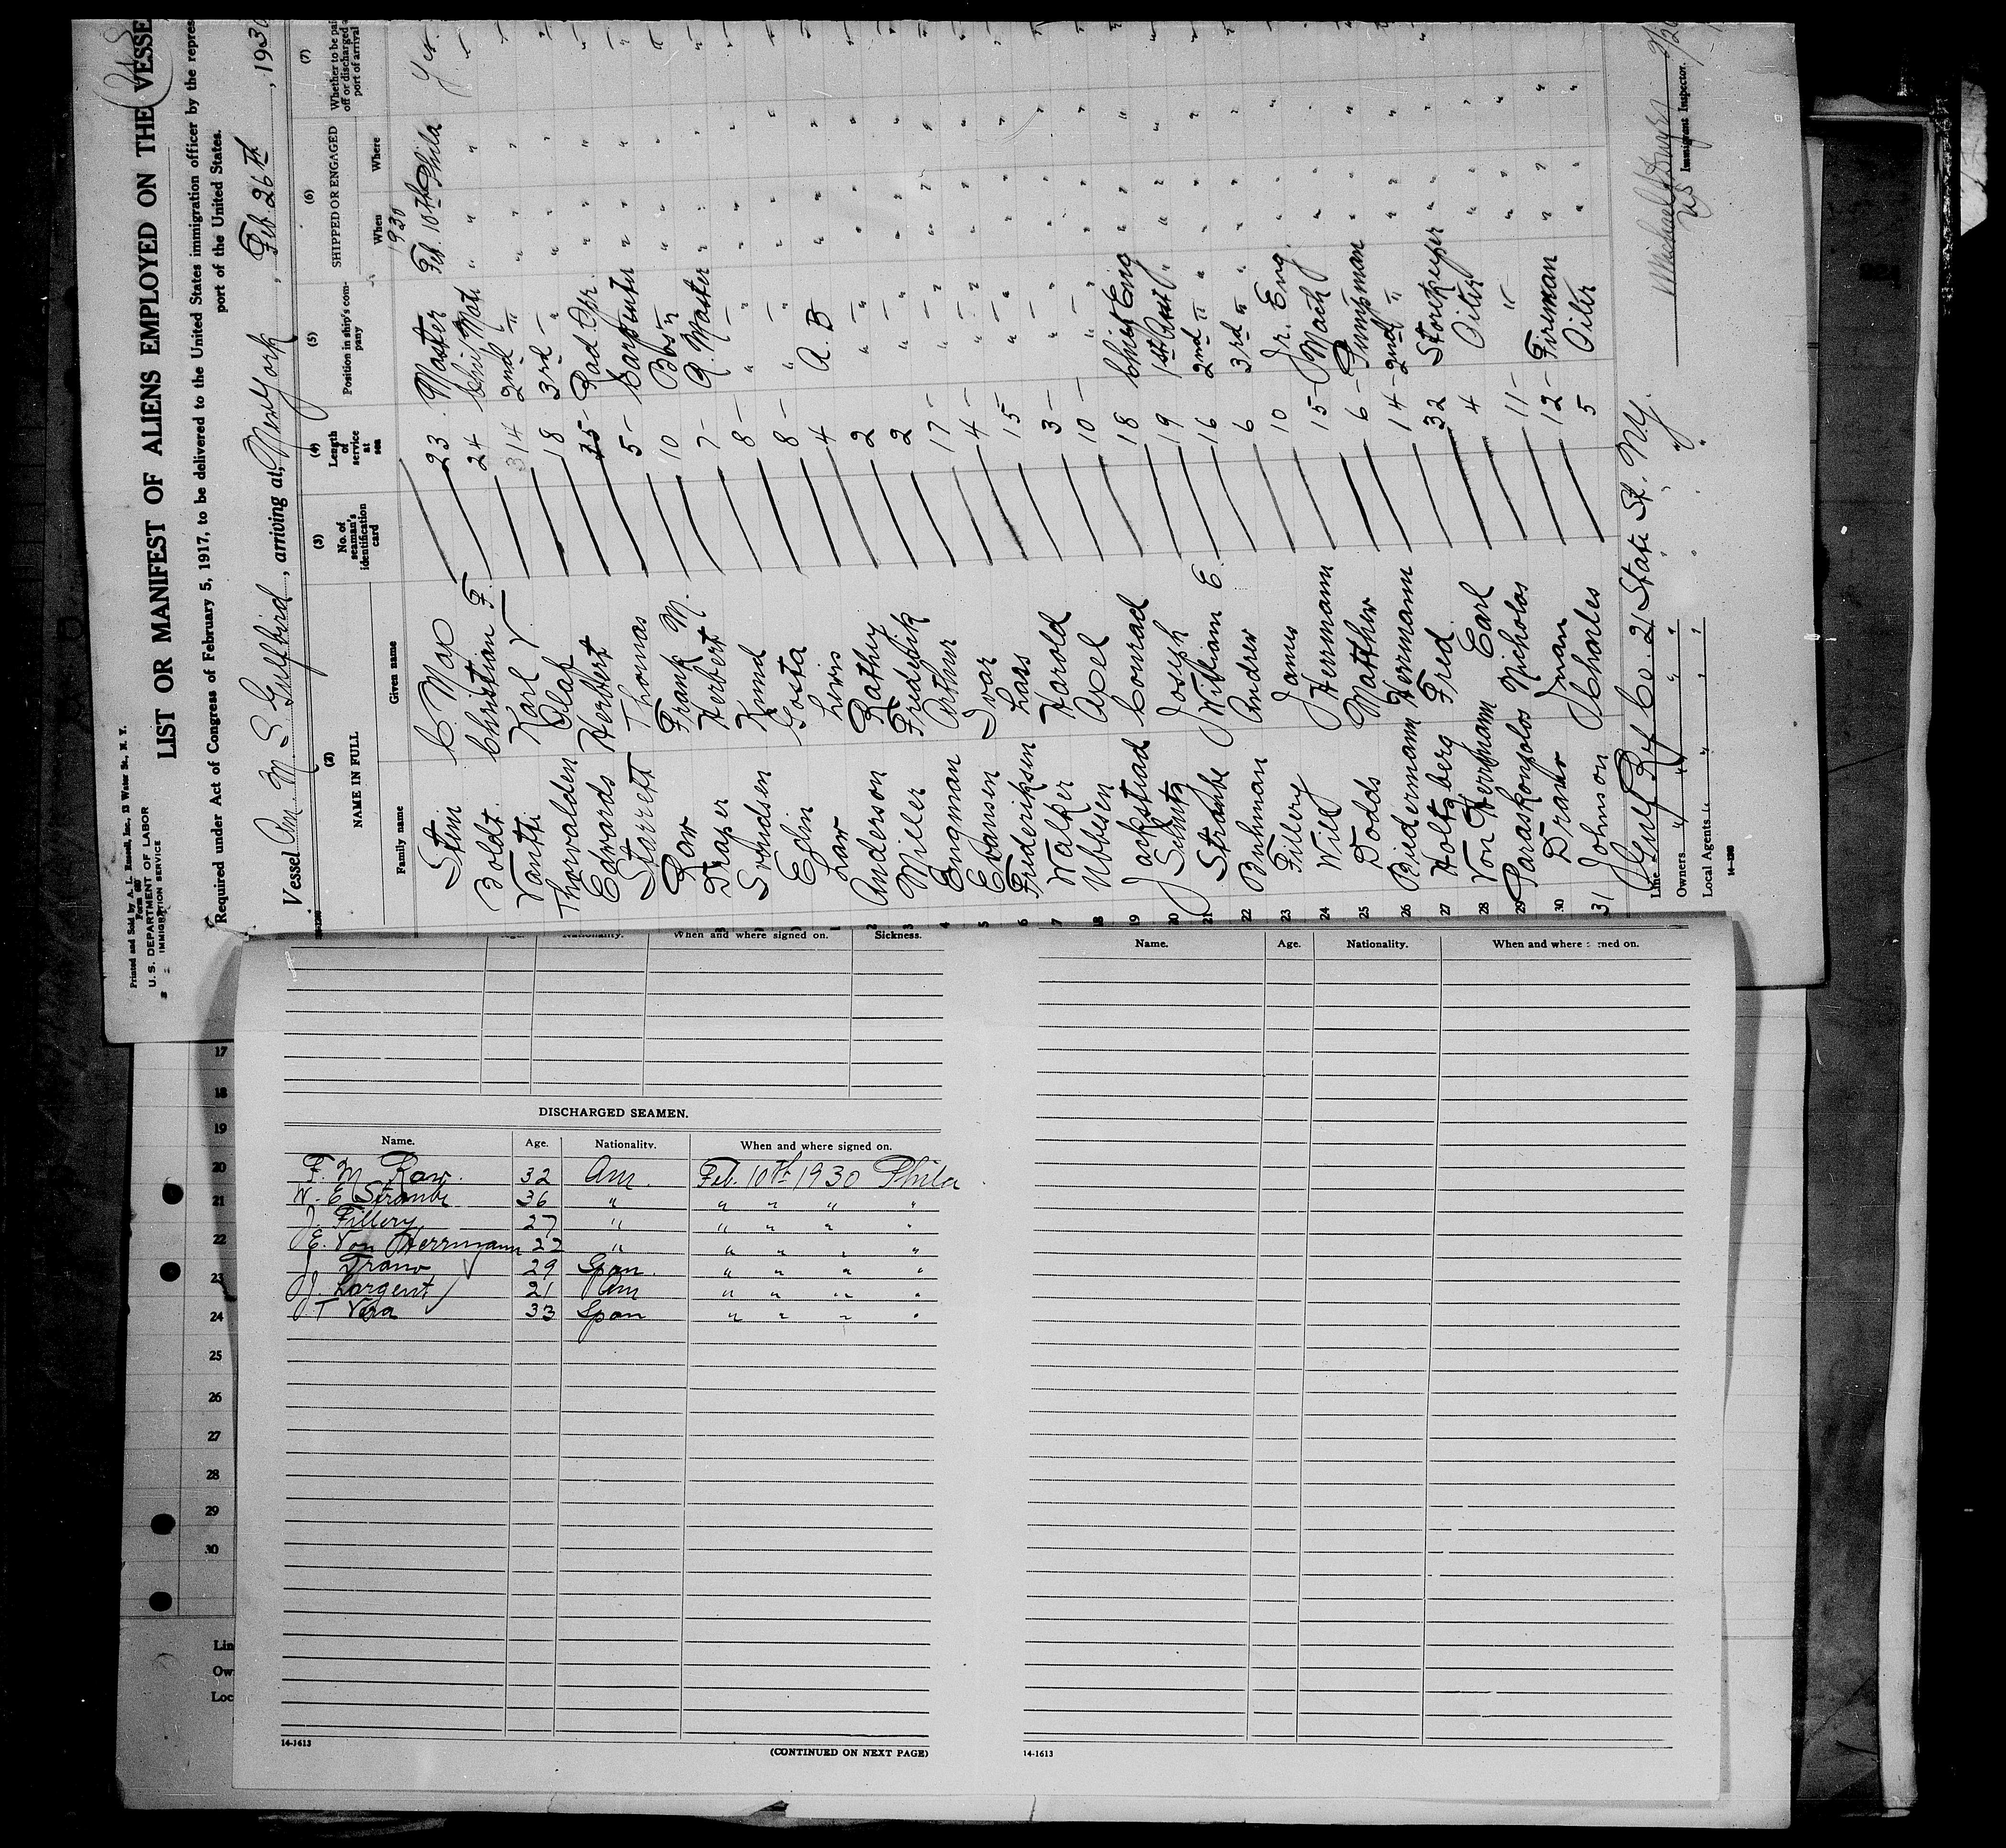 Printed and Sold by A. L. Russel, Inc., 13 Water St., N. Y.
U. S. DEPARTMENT OF LABOR
IMMIGRATION SERVICE
LIST OR MANIFEST OF ALIENS EMPLOYED ON THE VESSE
Required under Act of Congress of February 5, 1917, to be delivered to the United States immigration officer by the repres
port of the United States.
Vessel Am M S Gulfbird, arriving at New York, Feb. 26th, 1930
(2) (3) (4) (5) (6) (7)
NAME IN FULL No. of seaman's identification card Length of service at sea Position in ship's company SHIPPED OR ENGAGED Whether to be pai off or discharged a port of arrival
Family name Given name When Where
1930
Stein C. Max 23 Master Feb. 10th Phila Yes
Boldt Christian F. 24 Chief Mate " " "
Karl V 14 2nd " " " "
Thorvalden Olaf 18 3rd " " " "
Edwards Herbert 35 Rad. Opr. " " "
Starrett Thomas 5 Carpenter " " "
Raw Frank M. 10 Bos'n " " "
Draper Herbert 7 Q. Master " " "
Svendsen Knud 8 " " " "
Eglin Gosta 8 " " " "
Law Lewis 4 A. B " " "
2 Anderson Rathey 2 " " " "
3 Miller Frederick 2 " " " "
4 Engman Arthur 17 " " " "
5 Evansen Ivar 4 " " " "
6 Frederiksen Laas 15 " " " "
7 Walker Harold 3 " " " "
18 Ubbesen Axel 10 " " " "
19 Jarkstiad Conrad 18 Chief Eng " " "
20 Joseph 19 1st Asst " " "
21 Straube William E. 16 2nd " " " "
22 Buhman Andrew 6 3rd " " " "
23 Fillery James 10 Jr. Eng. " " "
24 Will Herrmann 15 Mach " " "
25 Dodds Matthew 6 Pumpman " " "
26 Briedermann Herrmann 14 2nd " " " "
27 Holtzberg Fred 32 Storekeeper " " "
28 Von Herrmann Earl 4 Oiler " " "
29 Paraskonfolos Nicholas 11 " " " "
30 Drano Juan 12 Fireman " " "
31 Johnson Charles 5 Oiler " " "
Line Gulf Rf Co. 21 State St. N.Y.
Owners " " " " "
Local Agents " " " "
Immigrant Inspector.
14-1240
Nationality. When and where signed on. Sickness.
Name. Age. Nationality. When and where signed on.
17
18
19
20
21
22
23
24
25
26
27
28
29
30
Lin
Ow
Loc
DISCHARGED SEAMEN.
Name. Age. Nationality. When and where signed on.
F. M Raw. 32 Am. Feb. 10th 1930 Phila
W. E Straube 36 " " " " "
J. Fillery 27 " " " " "
E. Von Herrmann 22 " " " " "
J Drano 29 Span. " " " "
J. Largent 21 Am " " " "
T Vera 33 Span " " " "
14-1613
(CONTINUED ON NEXT PAGE)
14-1613